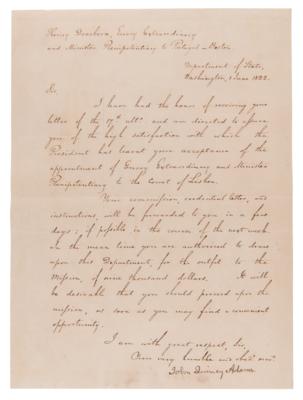 Henry Dearborn, Envoy Extraordinary
and Minister Plenipotentiary to Portugal – Boston
Department of State,
Washington, 1 June 1822.
Sir,
I have had the honor of receiving your
letter of the 17th ulto. and am directed to assure
you of the high satisfaction with which the
President has learnt your acceptance of the
appointment of Envoy Extraordinary and Minister
Plenipotentiary to the Court of Lisbon.
Your commission, credential letter, and
instructions, will be forwarded to you in a few
days; if possible in the course of the next week.
In the mean time you are authorized to draw
upon this Department, for the outfit to the
Mission, of nine thousand dollars. It will
be desirable that you should proceed upon the
mission, as soon as you may find a convenient
opportunity.
I am with great respect, Sir,
Your very humble and obedt. servt.
John Quincy Adams.